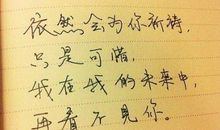 依然会为你祈祷,
只是可惜,
我在我的未来中,
再看不见你。